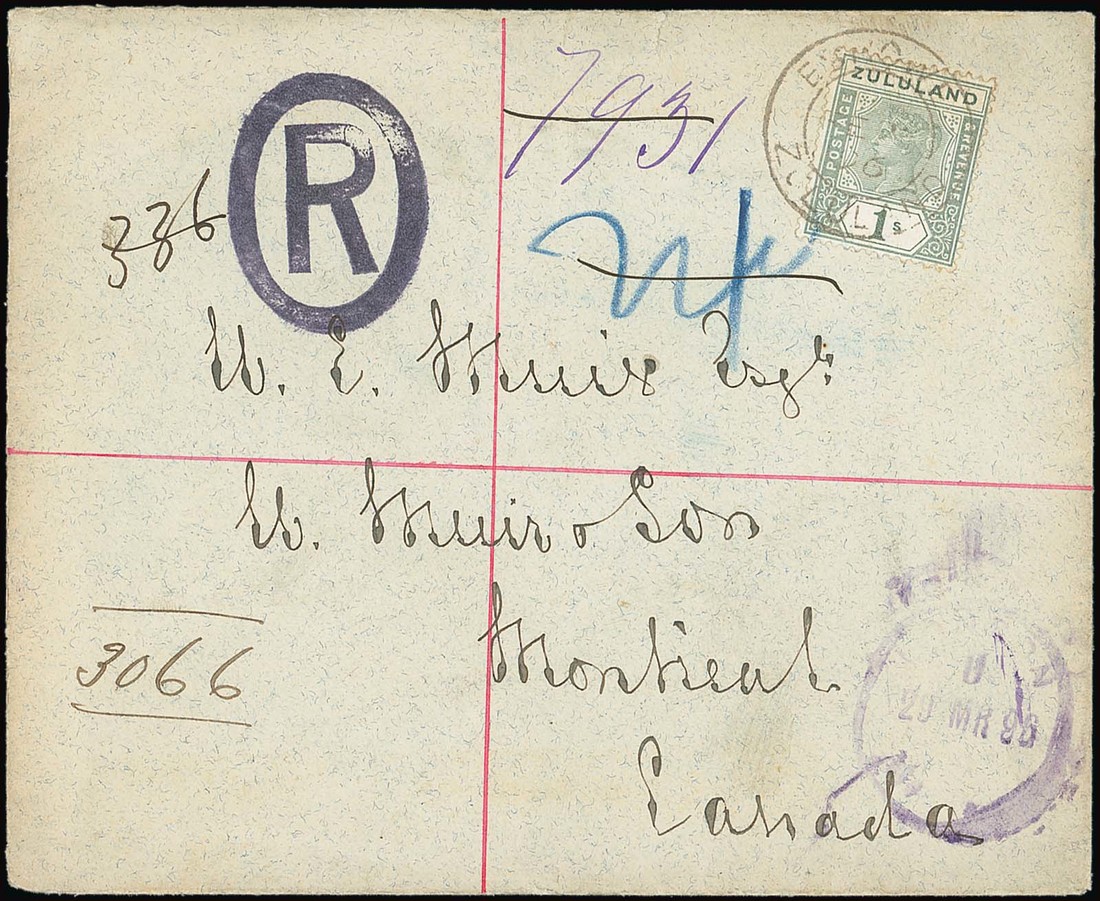 7931
ZULULAND
POSTAGE
& REVENUE
1s
R
336
W. E. Muir Esqr.
W. Muir & Son
Montreal
Canada
3066
MR 98